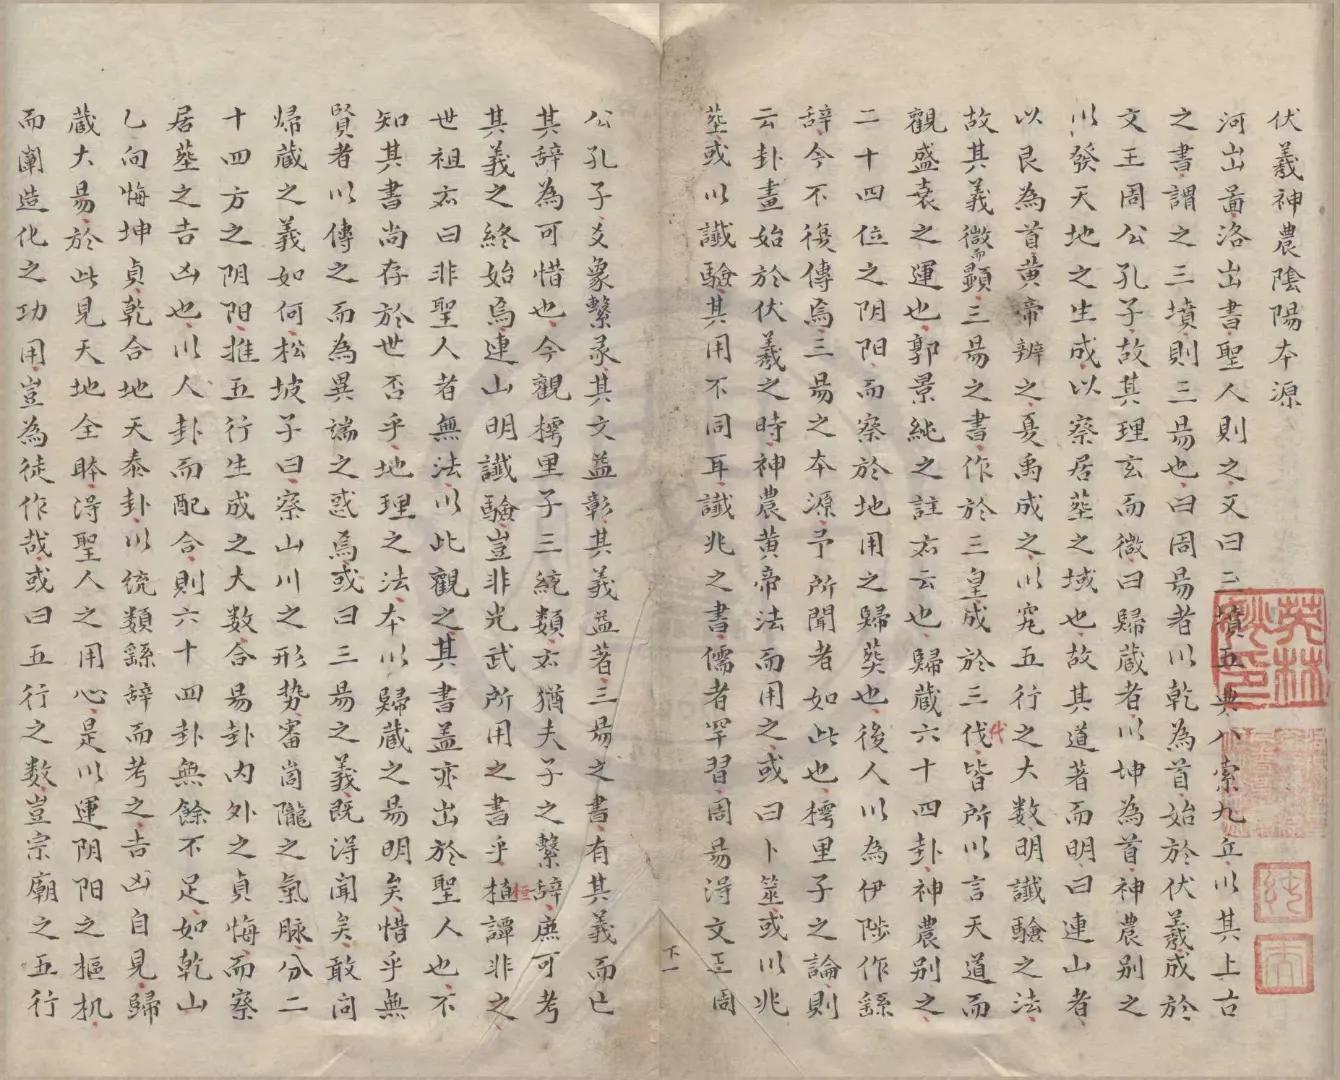 伏羲神農陰陽本源
河出啚洛出書聖人則之又曰三墳五典八索九丘以其上古
之書謂之三墳則三易也曰周易者以乾為首始於伏羲成於
文王周公孔子故其理玄而微曰歸蔵者以坤為首神農別之
以發天地之生成以察居塟之域也故其道著而明曰連山者
以艮為首黄帝辨之夏禹成之以究五行之大数明讖驗之法
故其義微而顯三易之書作於三皇成於三伐代皆所以言天道而
觀盛衰之運也郭景純之註云也歸蔵六十四卦神農別之
二十四位之阴阳而察於地用之歸葬也後人以為伊陟作繇
辞今不復傳焉三易之本源予所聞者如此也樗里子之論則
云卦畫始於伏羲之時神農黄帝法而用之或曰卜筮或以兆
塟或以讖驗其用不同耳讖兆之書儒者罕習周易淂文王周
公孔子爻彖繫彖其文益彰其義益著三易之書有其義而亡
其辞為可惜也今觀樗里子三統類猶夫子之繫辞庶可考
其義之終始焉連山明讖驗豈非光武所用之書乎桓譚非之
世祖曰非聖人者無法以此觀之其書盖亦出於聖人也不
知其書尚存於世否乎地理之法本以歸蔵之易明矣惜乎無
賢者以傳之而為異端之惑焉或曰三易之義既淂聞矣敢问
㱕蔵之義如何松坡子曰察山川之形势審崗隴之氣脉分二
十四方之阴阳推五行生成之大数合易卦内外之貞悔而察
居塟之吉凶也以人卦而配合則六十四卦無餘不足如乾山
乙向悔坤貞乾合地天泰卦以统類繇辞而考之吉凶自見歸
蔵大易於此見天地全体淂聖人之用心是以運阴阳之樞机
而闡造化之功用豈為徒作哉或曰五行之数豈宗廟之五行
下一